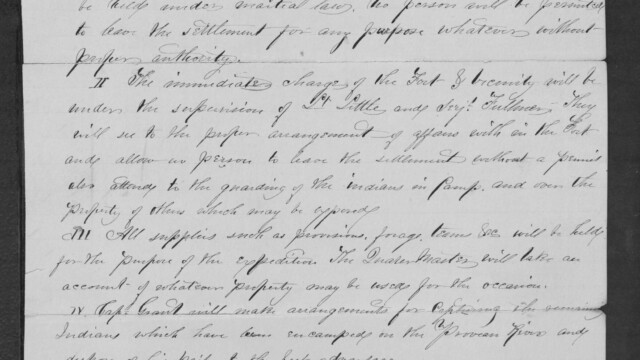 be held under martial law, no person will be permitted
to leave the settlement for any purpose whatever without
proper authority.
II The immediate charge of the Fort & vicinity will be
under the supervision of Lt Little and Serjt. They
will see to the proper arrangement of affairs with in the Fort
and allow no person to leave the settlement without a permit
also attend to the guarding of the indians in Camp. and over the
property of others which may be exposed
III All supplies such as provisions, forage, teams &c will be held
for the purpose of the expedition The Quarter Master will take an
account of whatever property may be used for the occasion.
IV Capt Grant will make arrangements for capturing the remaining
Indians which have been encamped on the Provo River and
to the best